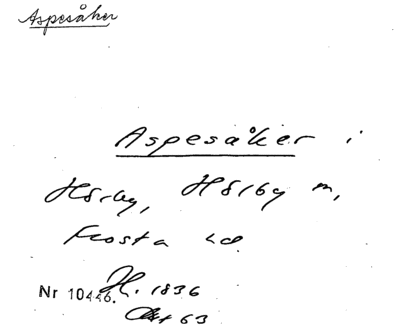 Aspesåker
Aspesåker i
Hörby, Hörby m,
Frosta hd
Nr 10446. H. 1836
Akt 63